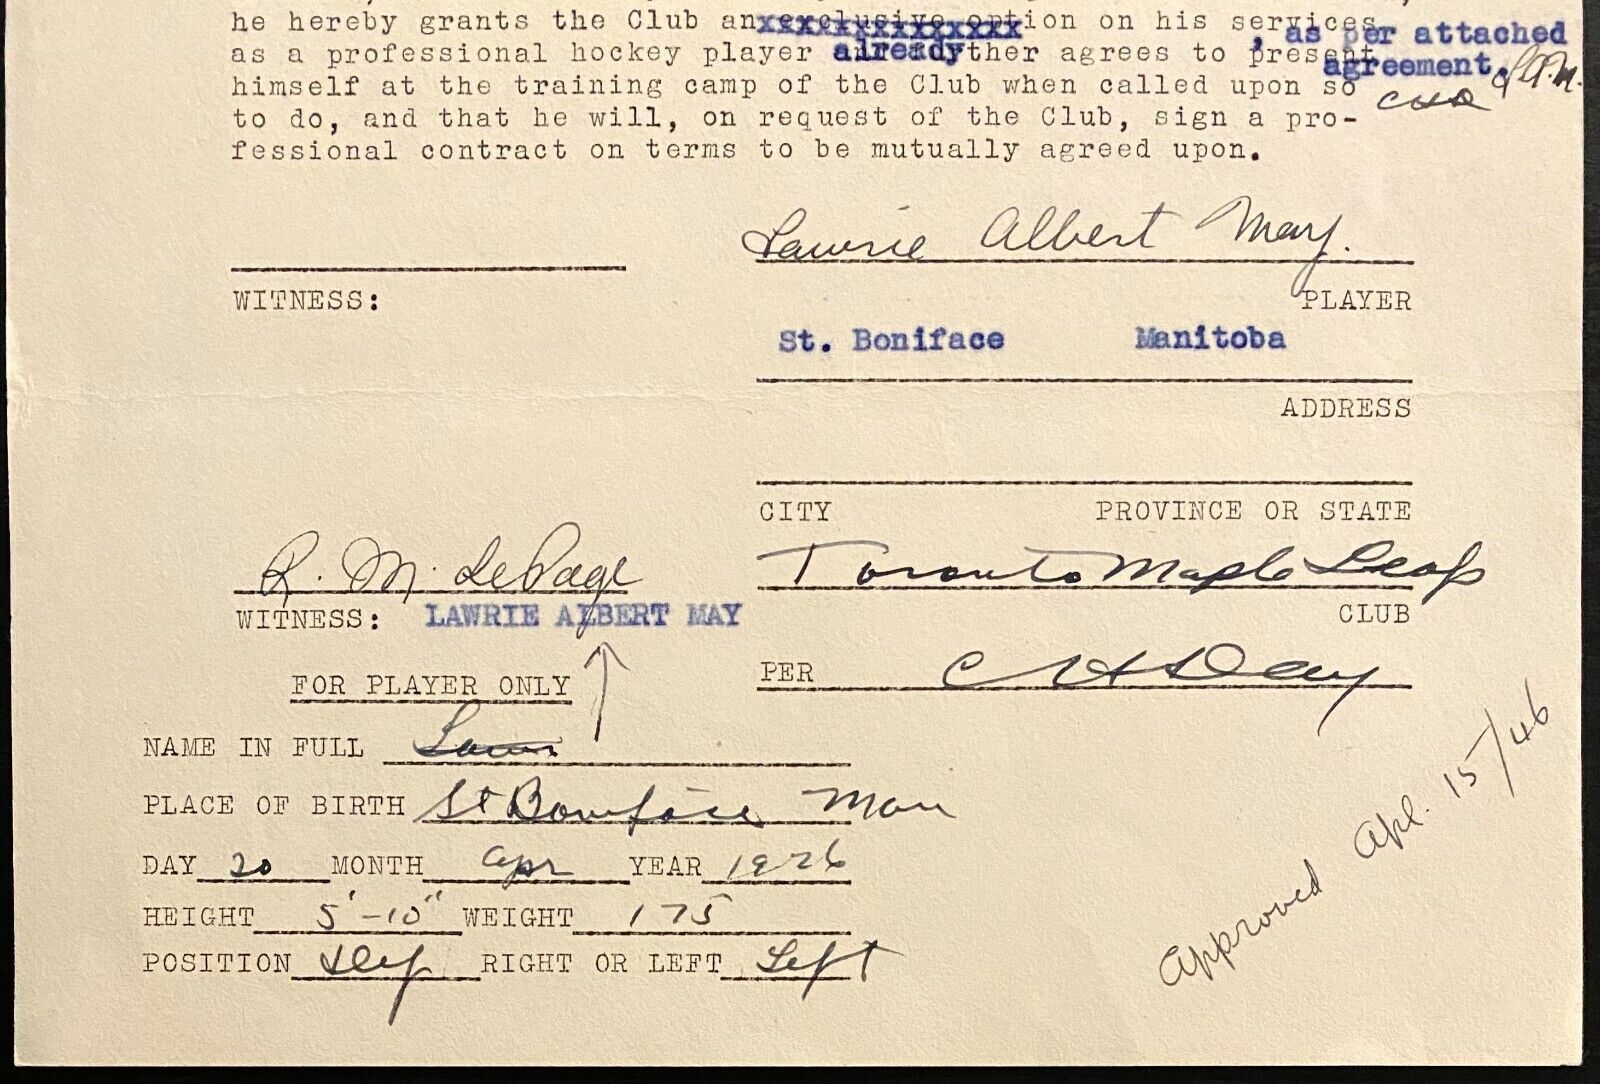 he hereby grants the Club an exclusive option on his services
, as per attached
as a professional hockey player already ther agrees to present
agreement. L.A.M.
himself at the training camp of the Club when called upon so
CHD
to do, and that he will, on request of the Club, sign a pro-
fessional contract on terms to be mutually agreed upon.
Lawrie Albert May.
WITNESS: PLAYER
St. Boniface Manitoba
ADDRESS
CITY PROVINCE OR STATE
R. M. LePage Toronto Maple Leafs
WITNESS: LAWRIE ALBERT MAY CLUB
PER C H Day
FOR PLAYER ONLY
NAME IN FULL
PLACE OF BIRTH St Boniface Man
DAY 20 MONTH Apr YEAR 1926
HEIGHT 5'-10" WEIGHT 175
POSITION Def RIGHT OR LEFT Left
Approved Apl. 15/46